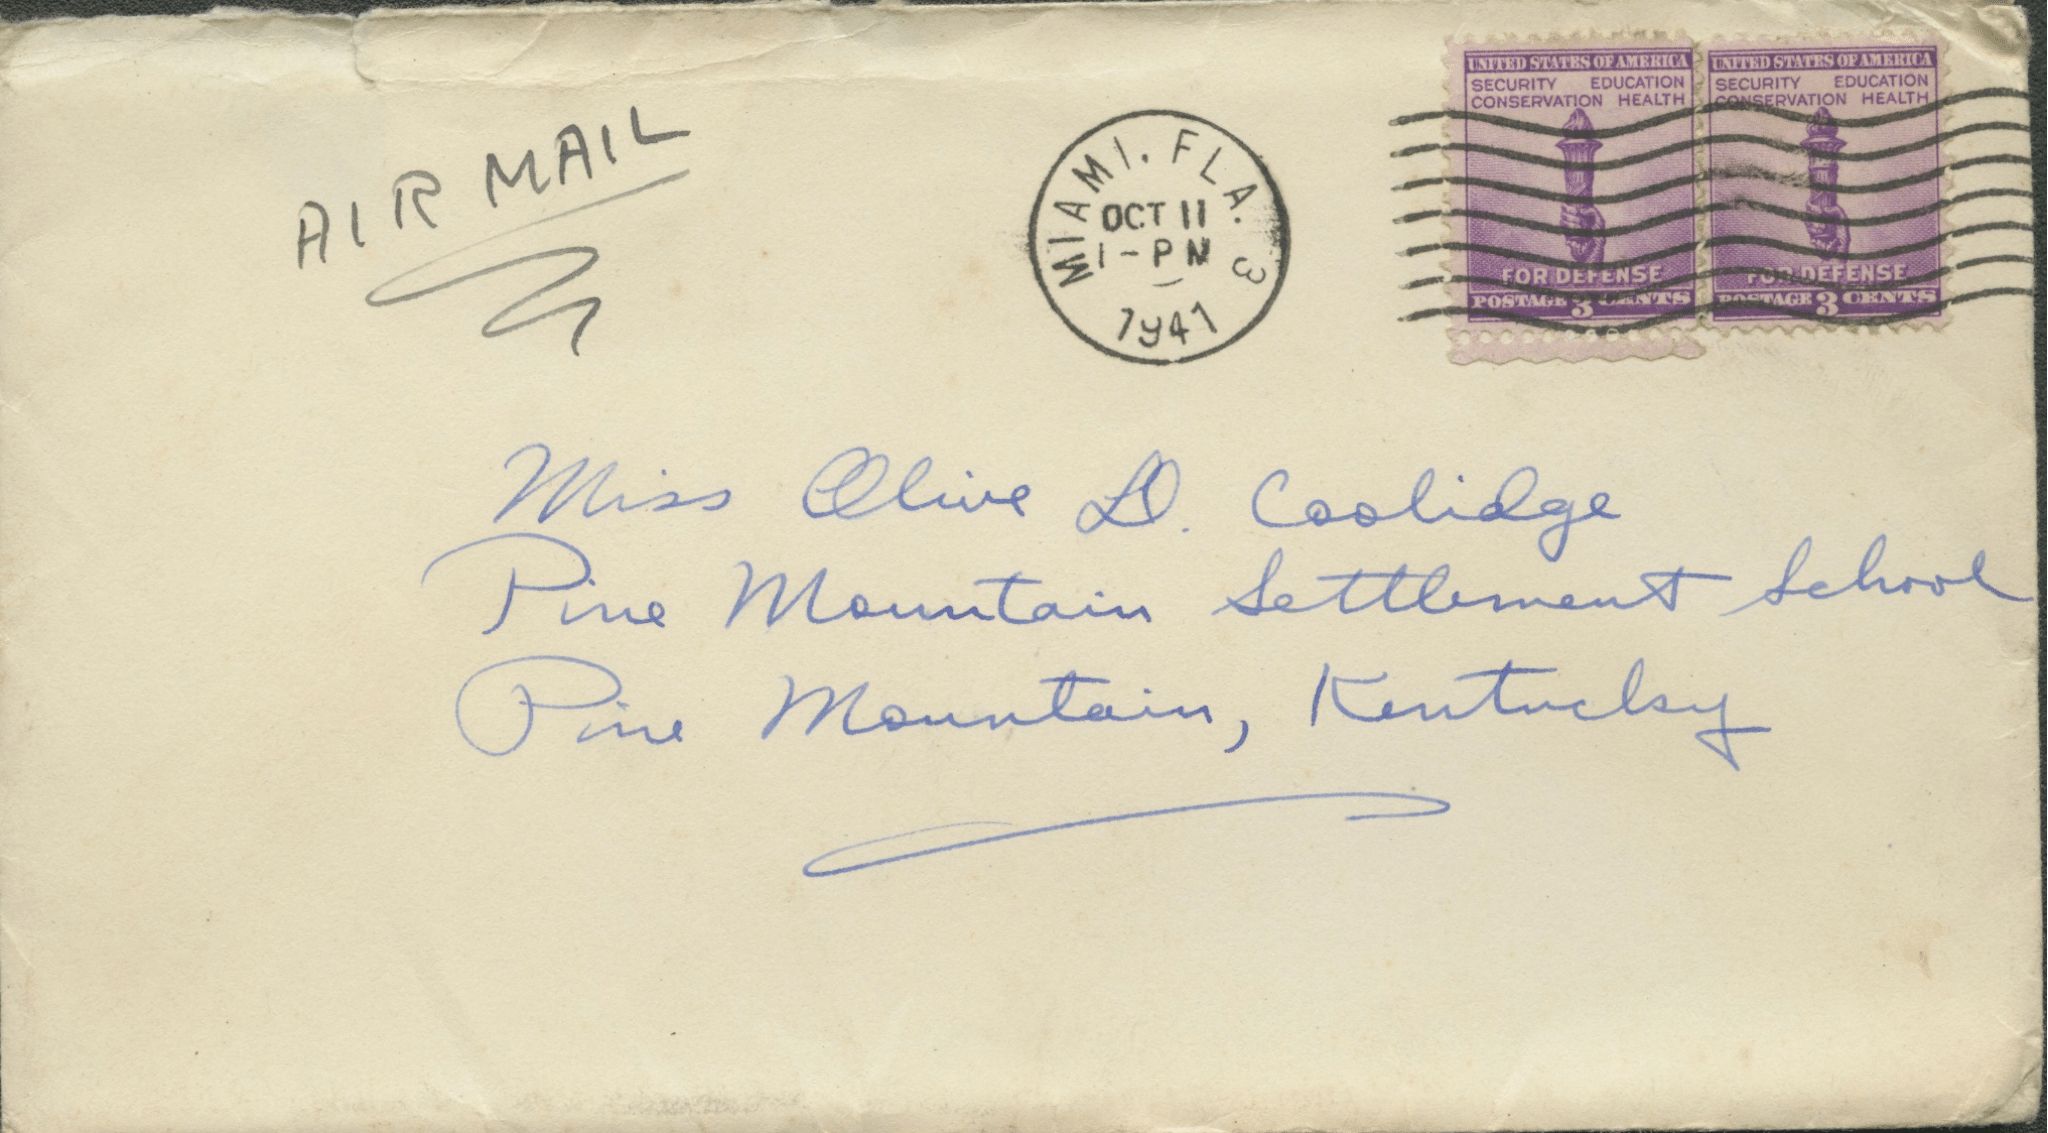 AIR MAIL
MIAMI, FLA. 3
OCT 11
1-PM
1941
UNITED STATES OF AMERICA
SECURITY EDUCATION
CONSERVATION HEALTH
FOR DEFENSE
POSTAGE 3 CENTS
UNITED STATES OF AMERICA
SECURITY EDUCATION
CONSERVATION HEALTH
FOR DEFENSE
POSTAGE 3 CENTS
Miss Olive D. Coolidge
Pine Mountain Settlement School
Pine Mountain, Kentucky